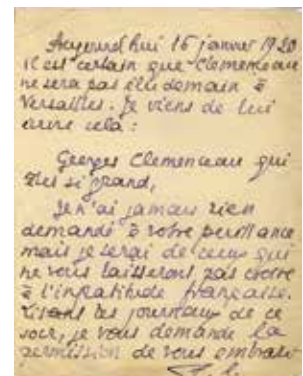 Aujourd'hui 16 janvier 1920
il est certain que Clemenceau
ne sera pas élu demain à
Versailles. Je viens de lui
écrire cela :
Georges Clemenceau qui
êtes si grand,
Je n'ai jamais rien
demandé à votre puissance
mais je serai de ceux qui
ne vous laisseront pas croire
à l'ingratitude française.
Lisant les journaux de ce
soir, je vous demande la
permission de vous embrasser